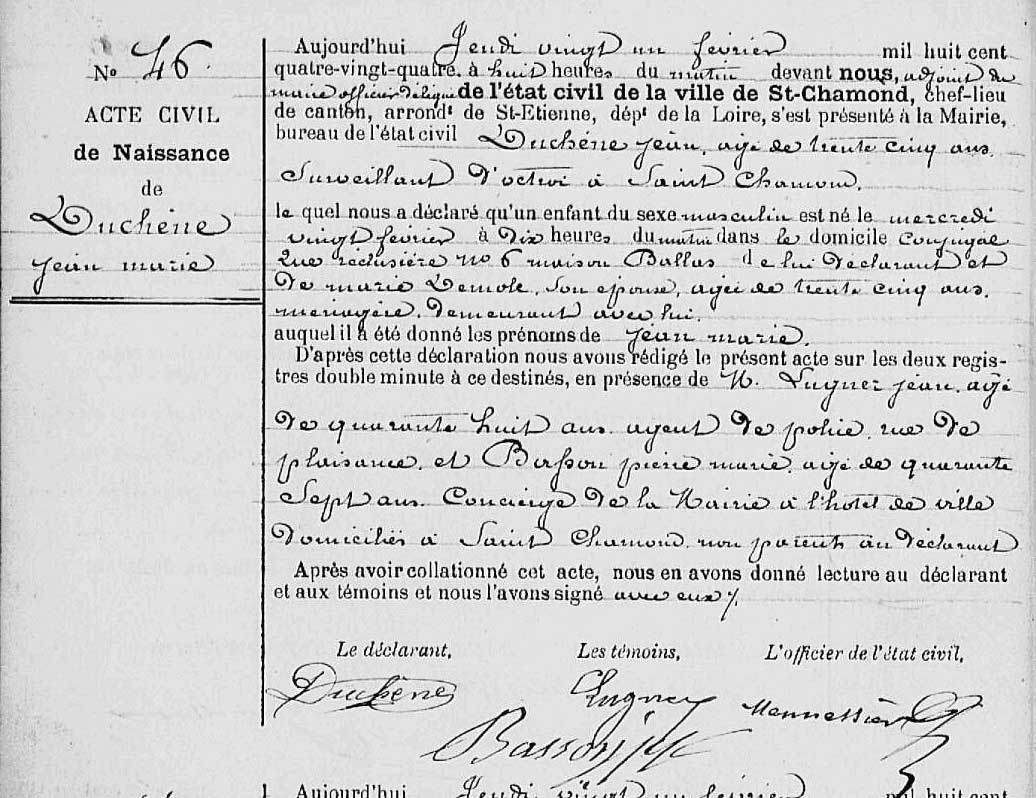 N° 46
ACTE CIVIL
de Naissance
de
Duchêne
jean marie
Aujourd'hui Jeudi vingt un février mil huit cent
quatre-vingt-quatre. à huit heures du matin devant nous, adjoint du
maire officier délégué de l'état civil de la ville de St-Chamond, chef-lieu
de canton, arrondt de St-Etienne, dépt de la Loire, s'est présenté à la Mairie,
bureau de l'état civil Duchêne jean, agé de trente cinq ans.
Surveillant d'octroi à Saint Chamond.
le quel nous a déclaré qu'un enfant du sexe masculin est né le mercredi
vingt février à dix heures du matin dans le domicile conjugal
Rue réclusière no 6 maison Ballas de lui déclarant et
de marie Demole, son épouse, agée de trente cinq ans.
menagère. demeurant avec lui.
auquel il a été donné les prénoms de jean marie.
D'après cette déclaration nous avons rédigé le présent acte sur les deux regis-
tres double minute à ce destinés, en présence de M. Lugnez jean, agé
de quarante huit ans agent de police, rue de
plaisance, et Basson pierre marie, agé de quarante
Sept ans Concierge de la Mairie à l'hotel de ville
domiciliés à Saint Chamond, non parents au déclarant
Après avoir collationné cet acte, nous en avons donné lecture au déclarant
et aux témoins et nous l'avons signé avec eux
Le déclarant, Les témoins, L'officier de l'état civil,
Duchêne Lugnez
Basson
Aujourd'hui Jeudi vingt un février mil huit cent